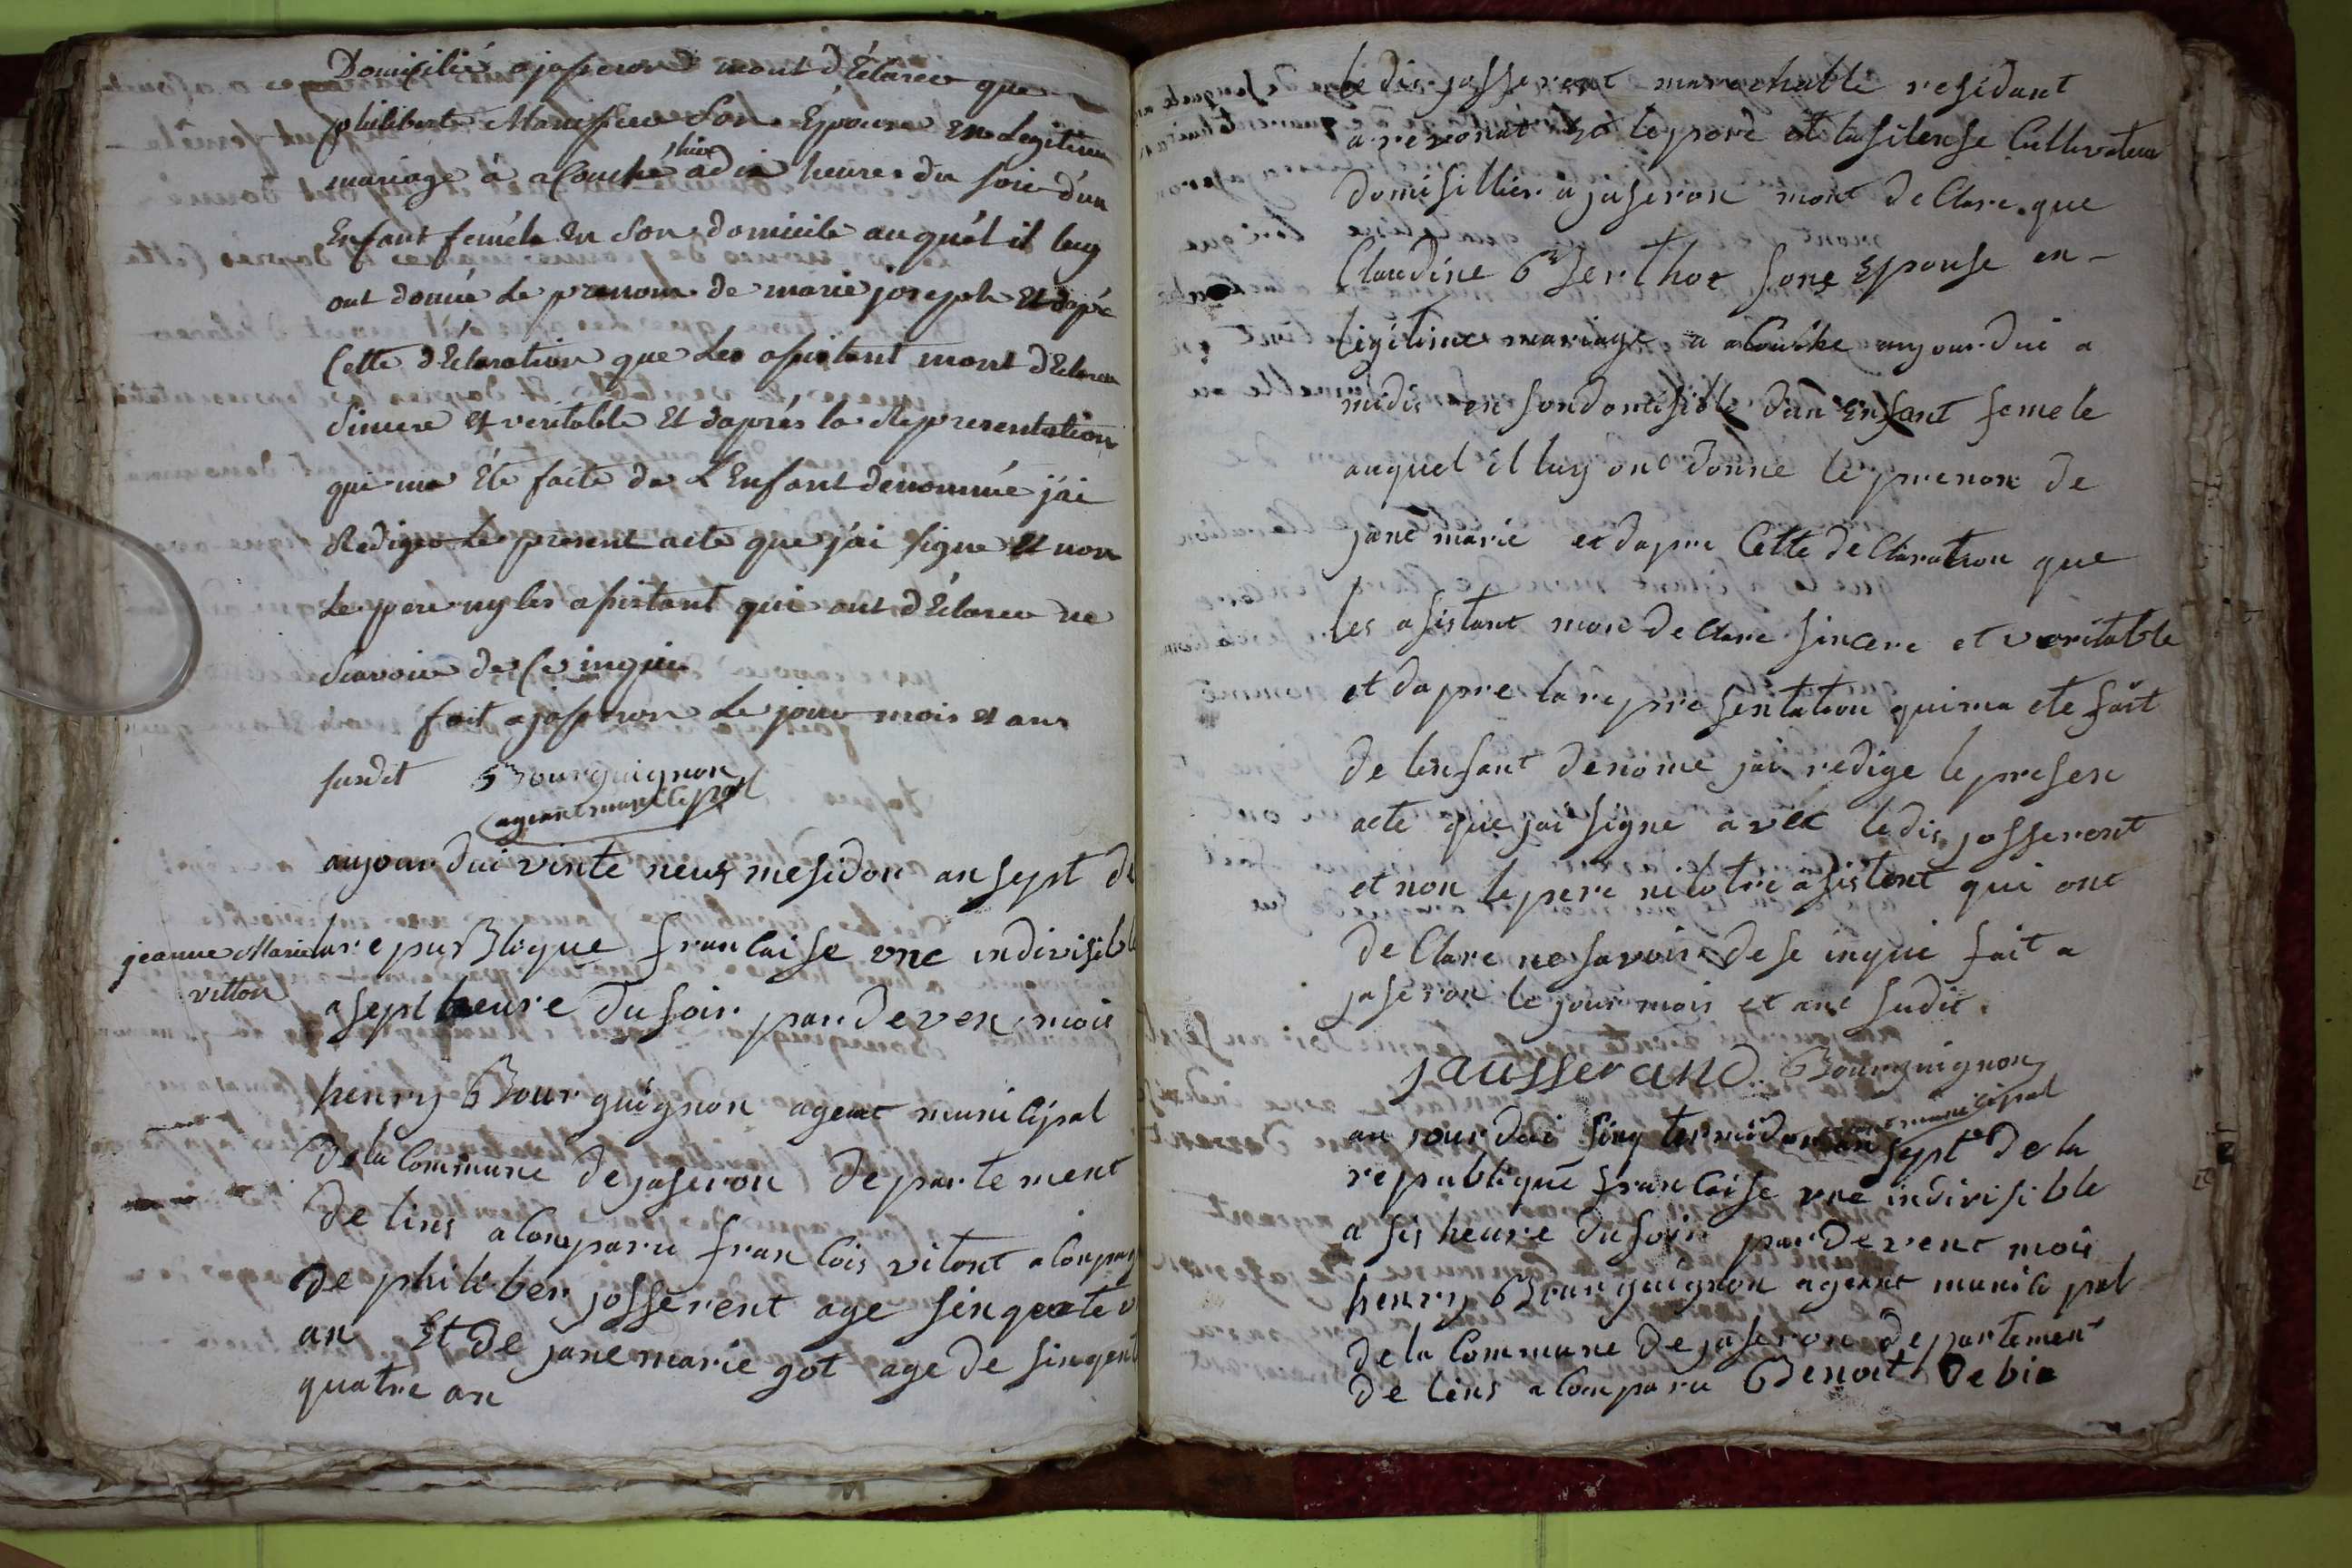 Domicilié a jasseron mont d'Eclaree que
philiberte Manissier Son Epouse En Legitime
mariage à acouché hier a dix heures du soir d'un
Enfant femele En Son domicile auquél il luy
ont donné Le prenom de marie joseph Et dapré
Cette d'Eclaration que Les assistant mont d'Eclaree
Sincere et veritable Et daprés la Representation
qui ma Eté faite de L'Enfant denommé j'ai
Rediger Le present acte que j'ai signé Et non
Le pere ny les assistant qui ont d'Eclaree ne
Scavoir de Ce inquie
fait a jasseron Le jour mois et an
susdit Bourguignon
agent municipal
aujourdui vinte neuf mesidor an sept de
la repurblique francaise une indivisible
jeanne Marie
vitton
a sept heure du soir pardeven moii
henry Bourguignon agent municipal
de la Commune de jaseron departement
de lins a Conparu francois vitont aConpan
de philiber josserent age sinquante
an Et de jane marie got age de sinqent
quatre an
Le dis josserent marechalle residant
a revonat et le pere et
Cultivateur
domisillier a jaseron mont de Clare que
Claudine Berthot sone Epouse en
legitime mariage a acouche aujourdui a
midis en son domisible dun Enfant femele
auquel il luy onc donne le prenon de
jane marie et dapre Cette de Claration que
les asistant mon de Clare sincere et veritable
et dapre la representation qui ma ete fait
de lenfant denome jai redige le presen
acte que jai signe avec le dis josserent
et non le pere ni lotre asistent qui ont
de Clare ne savoir de se inquie fait a
jaseron le jour mois et ane sudit.
jausserand Bourguignon
agent municipal
au jourdui sinq termidor an sept de la
republique francaise une indivisible
a sis heure du soir pardevent moii
henry Bourguignon agent municipal
de la Commune de jaseron departement
de lins a Conparu Benoit Debie